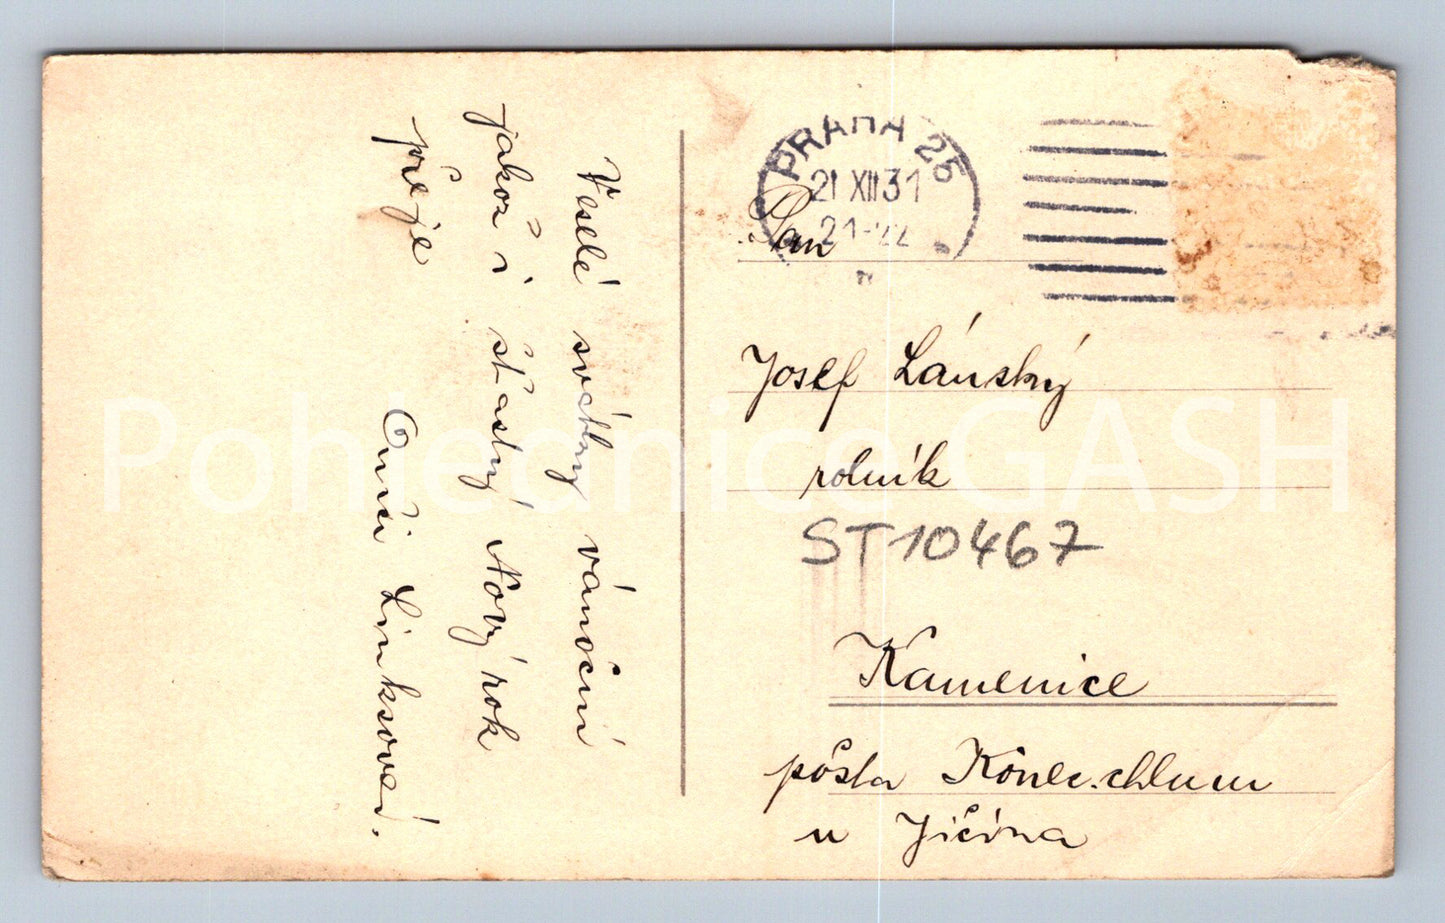 Veselé svátky vánoční
jakož i šťastný Nový rok
přeje
Onži Linksoved.
PRAHA 25
21 XII 31
21-22
Pan
Josef Lánský
rolník
ST10467
Kamenice
pošta Konec.chlum
u Jičína
Pohlednice GASH